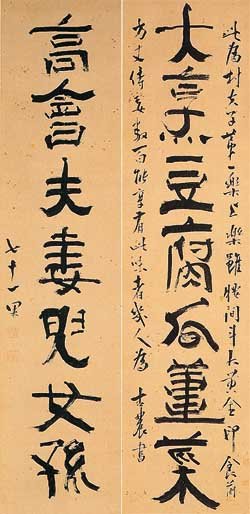 大烹豆腐瓜薑菜
高會夫妻兒女孫
此爲村夫子第一樂上樂雖腰間斗大黃金印食前
方丈侍妾數百能享有此味者幾人爲 杏農書
七十一果